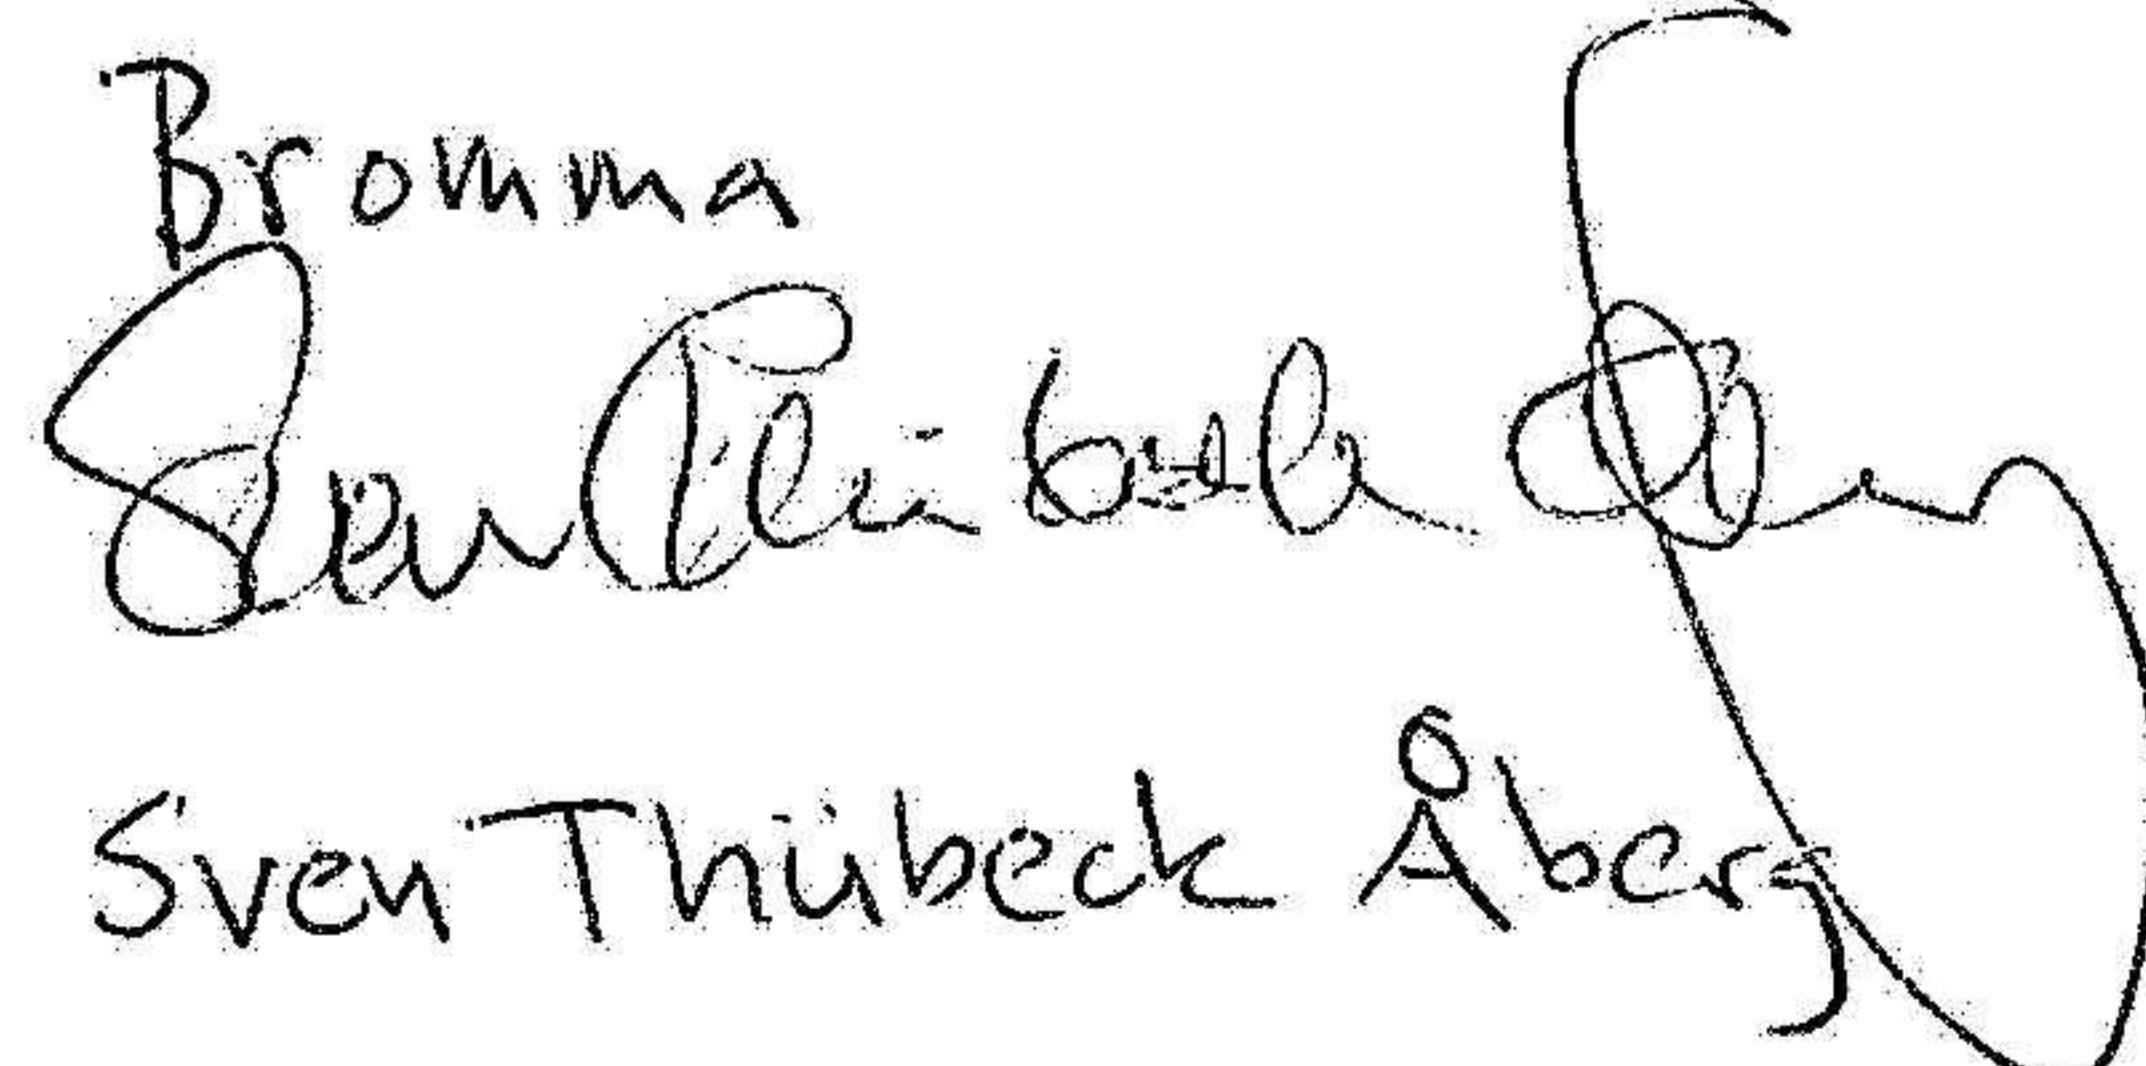 Bromma
Sven Thübeck Åberg
Sven Thübeck Åberg